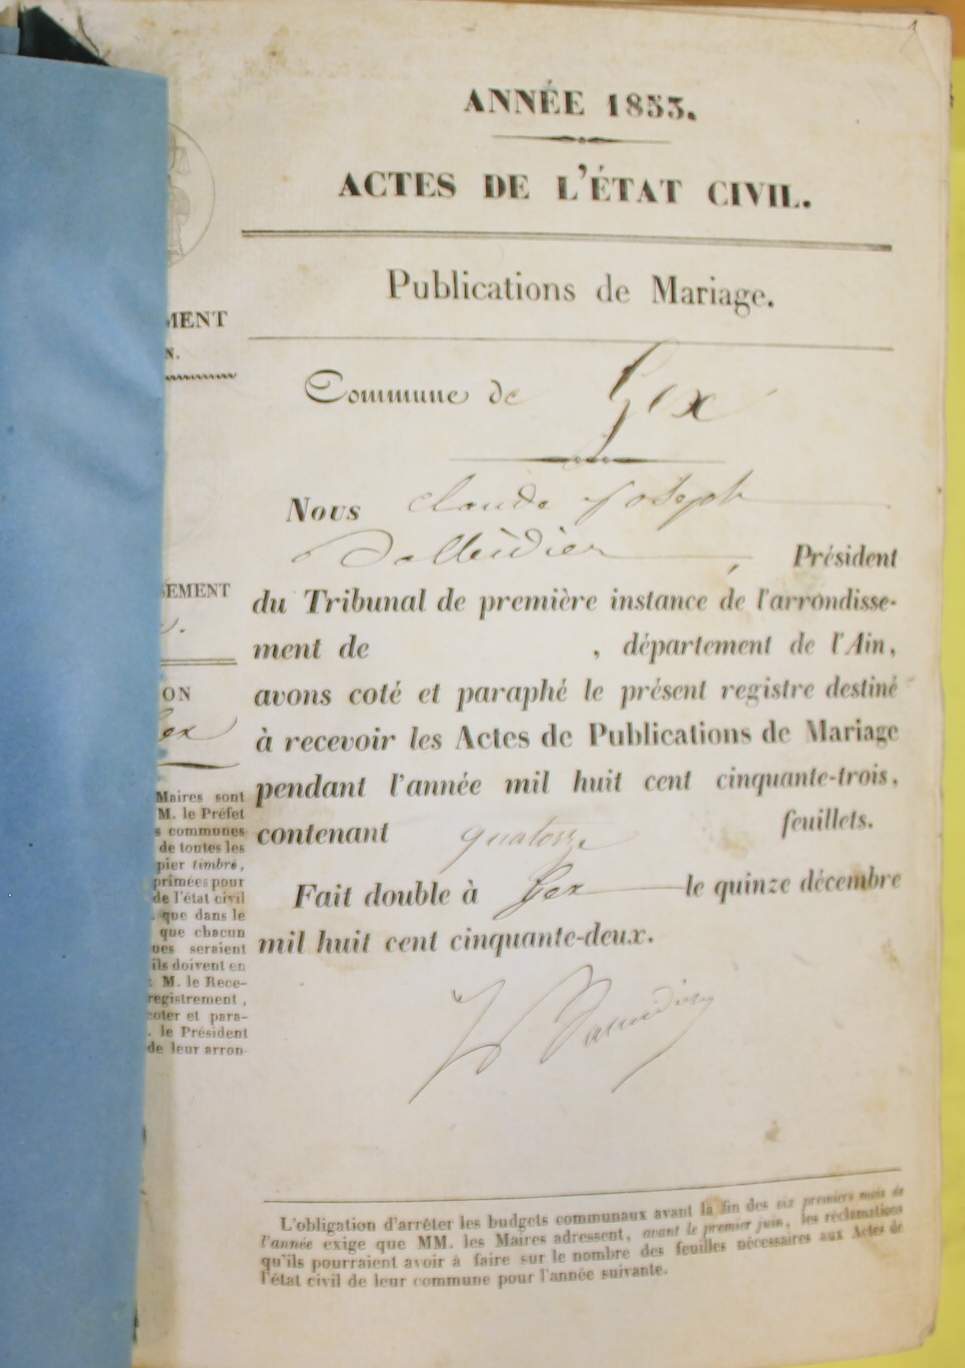 1
ANNÉE 1853.
ACTES DE L'ÉTAT CIVIL.
Publications de Mariage.
MENT
N.
Commune de Gex
Nous Claude Joseph
Président
EMENT
du Tribunal de première instance de l'arrondisse-
ment de , département de l'Ain,
ON
avons coté et paraphé le présent registre destiné
ex
à recevoir les Actes de Publications de Mariage
pendant l'année mil huit cent cinquante-trois,
contenant quatorze feuillets.
Fait double à Gex le quinze décembre
mil huit cent cinquante-deux.
Maires sont
M. le Préfet
s communes
de toutes les
pier timbré,
primées pour
de l'état civil
que dans le
que chacun
ues seraient
ils doivent en
M. le Rece-
registrement,
coter et para-
. le Président
de leur arron-
L'obligation d'arrêter les budgets communaux avant la fin des six premiers mois de
l'année exige que MM. les Maires adressent, avant le premier juin, les réclamations
qu'ils pourraient avoir à faire sur le nombre des feuilles nécessaires aux Actes de
l'état civil de leur commune pour l'année suivante.